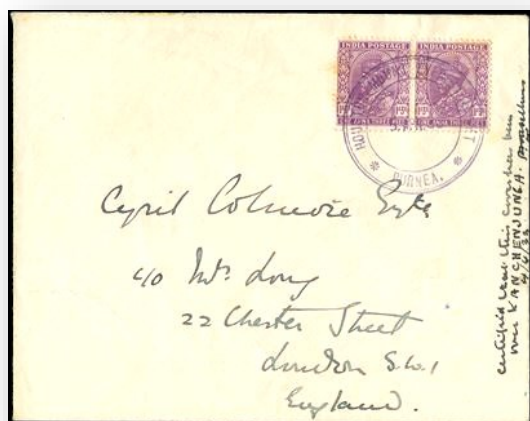 INDIA POSTAGE INDIA POSTAGE
HOUSTON MOUNT EVEREST FLIGHT
* PURNEA. *
Cyril Colmore Esqre
c/o Mrs. Long
22 Chester Street
London S.W.1
England.
certified that this cover has been
over KANCHENJUNGA.
4/4/33